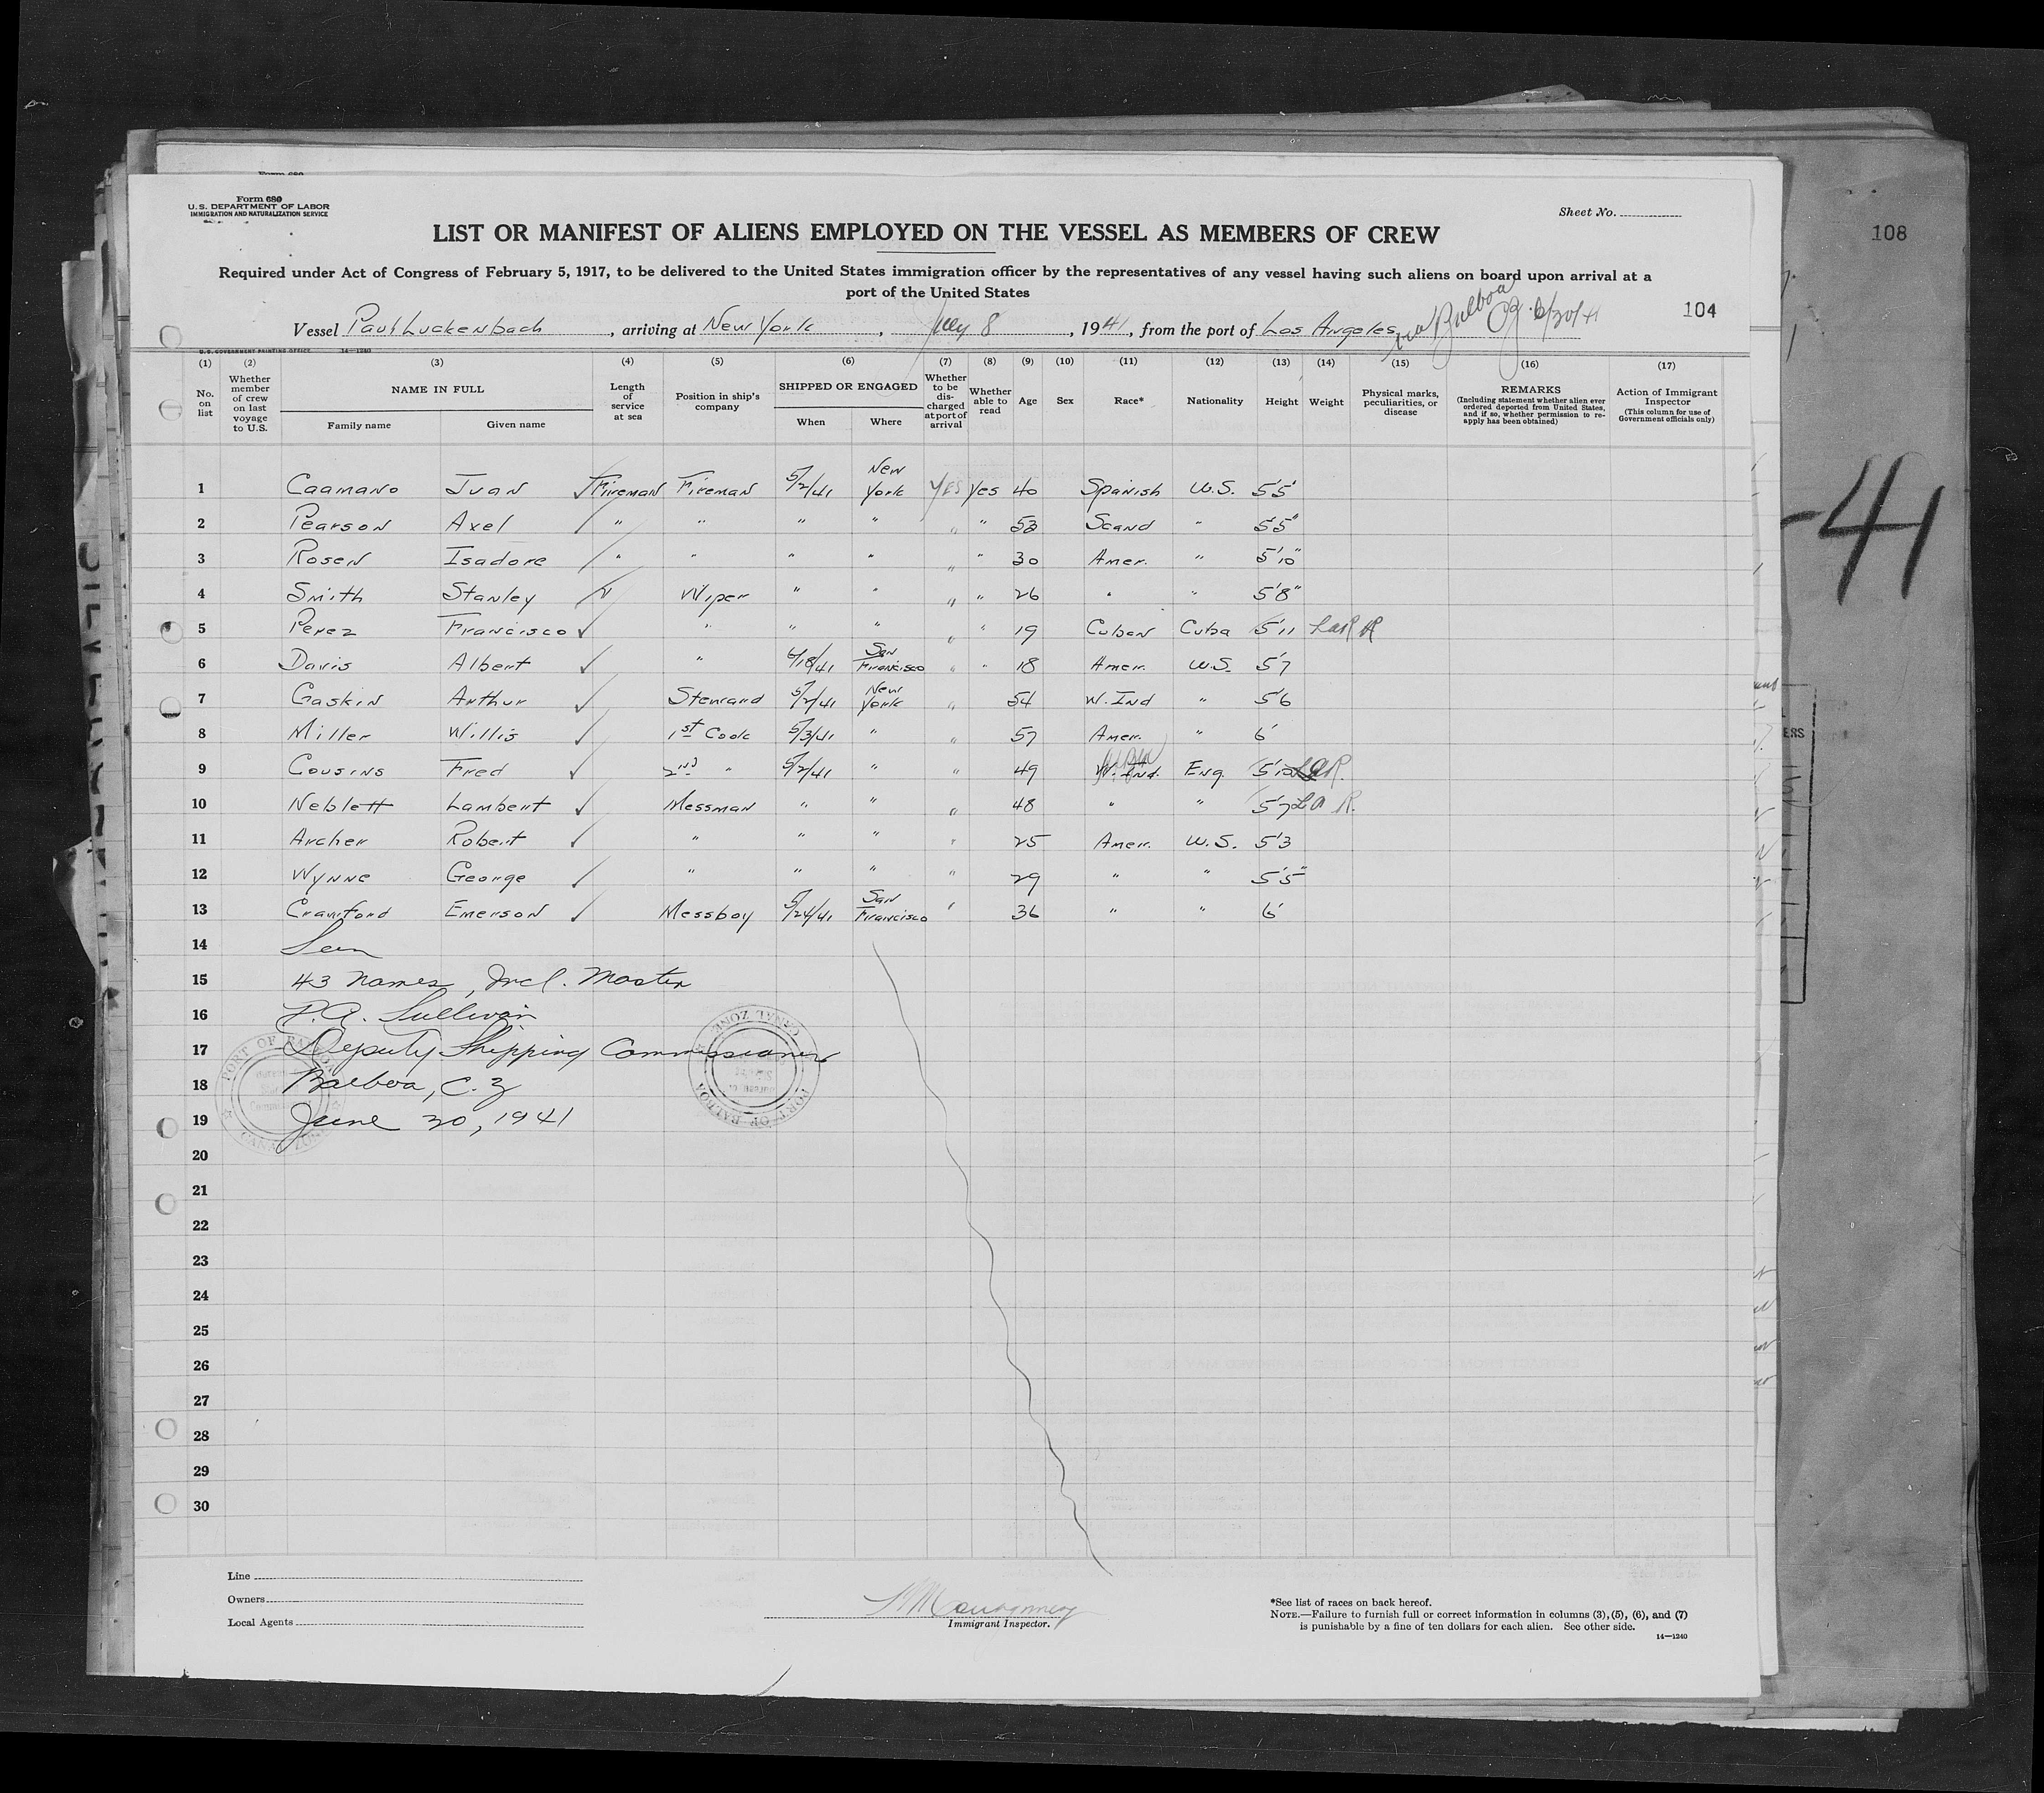 Form 680
U. S. DEPARTMENT OF LABOR
IMMIGRATION AND NATURALIZATION SERVICE
Sheet No.
LIST OR MANIFEST OF ALIENS EMPLOYED ON THE VESSEL AS MEMBERS OF CREW
108
Required under Act of Congress of February 5, 1917, to be delivered to the United States immigration officer by the representatives of any vessel having such aliens on board upon arrival at a
port of the United States
104
Vessel Paul Luckenbach, arriving at New York, July 8, 1941, from the port of Los Angeles via Balboa 6/30/41
U. S. GOVERNMENT PRINTING OFFICE 14—1240
(1) (2) (3) (4) (5) (6) (7) (8) (9) (10) (11) (12) (13) (14) (15) (16) (17)
No. on list Whether member of crew on last voyage to U.S. NAME IN FULL Family name Given name Length of service at sea Position in ship's company SHIPPED OR ENGAGED When Where Whether to be discharged at port of arrival Whether able to read Age Sex Race* Nationality Height Weight Physical marks, peculiarities, or disease REMARKS (Including statement whether alien ever ordered deported from United States, and if so, whether permission to re-apply has been obtained) Action of Immigrant Inspector (This column for use of Government officials only)
1 Caamano Juan Fireman Fireman 5/2/41 New York Yes Yes 40 Spanish U.S. 5'5"
2 Pearson Axel " " " " " " 53 Scand " 5'5"
3 Rosen Isadore " " " " " " 30 Amer. " 5'10"
4 Smith Stanley " Wiper " " " " 26 " " 5'8"
5 Perez Francisco " " " " " 19 Cuban Cuba 5'11
6 Davis Albert " 6/18/41 San Francisco " " 18 Amer. U.S. 5'7
7 Gaskin Arthur Steward 5/2/41 New York " 54 W. Ind " 5'6
8 Miller Willis 1st Cook 5/3/41 " " 57 Amer. " 6'
9 Cousins Fred 2nd " 5/2/41 " " 49 W. Ind. Eng. 5'10
10 Neblett Lambert Messman " " " 48 " " 5'7 L A R.
11 Archer Robert " " " " 25 Amer. U.S. 5'3
12 Wynne George " " " " 29 " " 5'5"
13 Crawford Emerson Messboy 5/24/41 San Francisco " 36 " " 6'
14 Seen
15 43 names, Incl. Master
16 P.A. Sullivan
17 Deputy Shipping Commissioner
18 Balboa, C. Z
19 June 30, 1941
20
21
22
23
24
25
26
27
28
29
30
PORT OF BALBOA
CANAL ZONE
PORT OF BALBOA
CANAL ZONE
-41
Line
Owners
Local Agents
Montgomery
Immigrant Inspector.
*See list of races on back hereof.
NOTE.—Failure to furnish full or correct information in columns (3), (5), (6), and (7)
is punishable by a fine of ten dollars for each alien. See other side.
14—1240